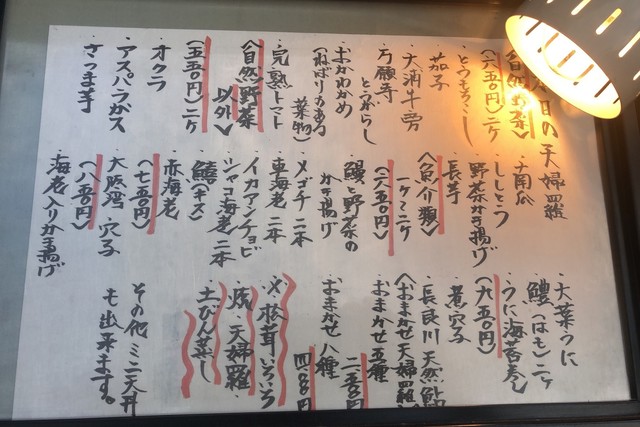 本日の天婦羅
〈自然野菜〉
(六五〇円)二ケ
・とうもろこし
・茄子
・大浦牛蒡
・万願寺
とうがらし
・おかわかめ
(ねばりのある
葉物)
・完熟トマト
〈自然野菜
以外〉
(五五〇円)二ケ
・オクラ
・アスパラガス
・さつま芋
・子南瓜
・ししとう
・野菜かき揚げ
・長芋
〈魚介類〉
一ケ〜二ケ
(六五〇円)
・鰻と野菜の
かき揚げ
・メゴチ 二本
・車海老 二本
・イカアンチョビ
・シャコ海老 二本
・鱚(キス)
・赤海老
(七五〇円)
・大阪湾 穴子
(八五〇円)
・海老入りかき揚げ
・大葉うに
・鱧(はも)二ケ
・うに海苔巻
(九五〇円)
・煮穴子
・長良川 天然鮎
〈おまかせ天婦羅〉
おまかせ五種
二二五〇円
おまかせ八種
四〇〇円
・〆松茸いろいろ
・炙 天婦羅
・土びん蒸し
その他 ミニ天丼
も出来ます。